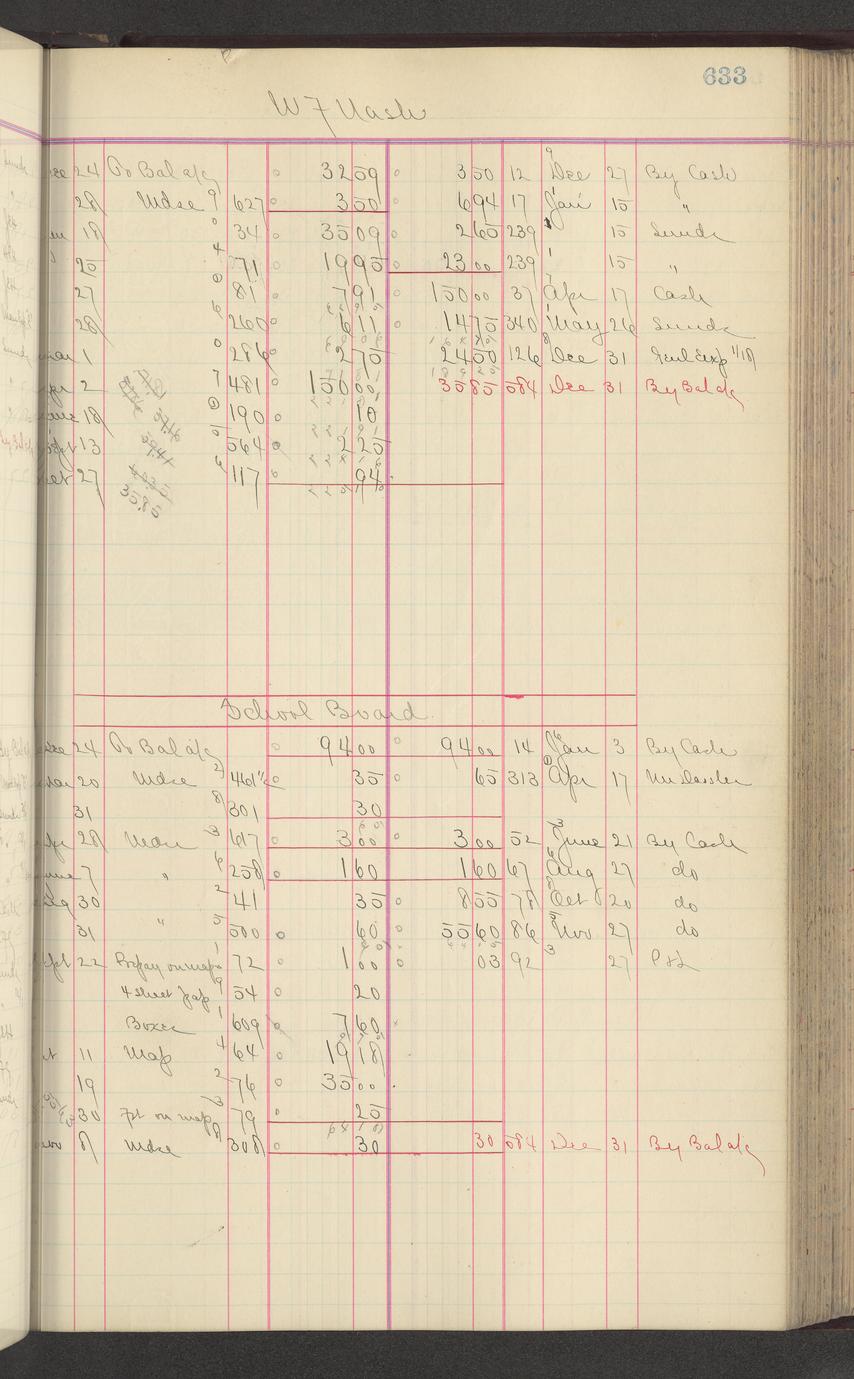 633
W F Nash
24 To Bal a/c 32 59 3 50 12 Dec 27 By Cash
28 Mdse 627 3 50 6 94 17 Jan 15 "
18 34 35 09 2 65 239 15 Sunds
25 71 19 95 23 00 239 15 "
27 81 7 91 150 00 37 Apr 17 Cash
28 260 6 11 14 75 340 May 26 Sunds
1 286 2 75 24 50 126 Dec 31 Genl Exp 1/18
2 481 150 00 35 85 584 Dec 31 By Bal a/c
18 190 10
13 564 2 25
27 117 94
35.85
School Board
24 To Bal a/c 94 00 94 00 14 Jan 3 By Cash
20 Mdse 461 35 65 313 Apr 17
31 301 30
28 Mdse 617 3 00 3 00 52 June 21 By Cash
7 " 258 1 60 1 60 67 Aug 27 do
30 41 35 8 55 78 Oct 20 do
31 " 500 60 55 60 86 Nov 27 do
22 Prepay on map 72 1 00 03 92 27 P & L
4 sheet 54 20
Boxes 609 7 60
11 Map 64 19 18
19 76 35 00
30 Frt on map 79 25
8 Mdse 308 30 30 584 Dec 31 By Bal a/c